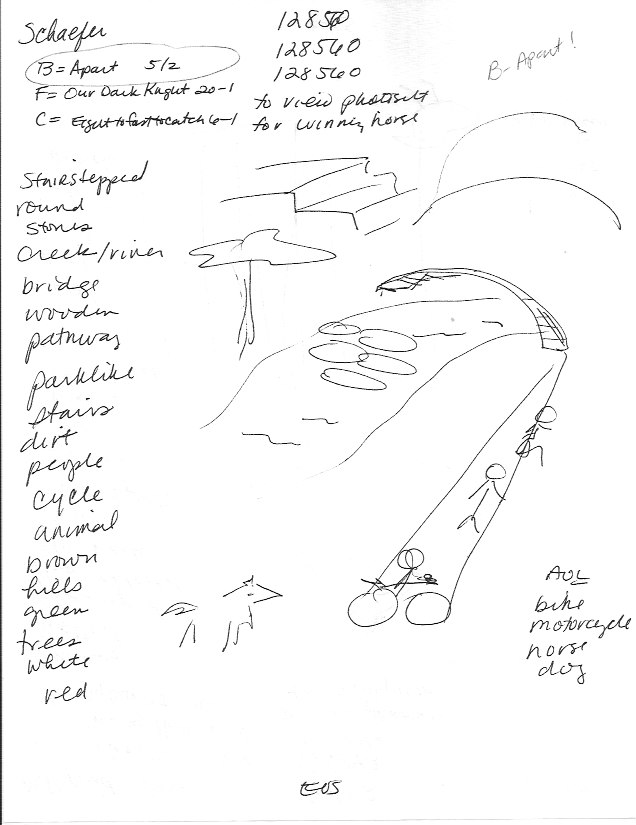 Schaefer
B = Apart 5/2
F = Our Dark Knight 20-1
C = Eqquttofasttocatch 6-1
128560
128560
128560
to view photosite
for winning horse
B - Apart!
Stairstepped
round
stones
Creek/river
bridge
wooden
pathway
parklike
stairs
dirt
people
cycle
animal
brown
hills
green
trees
white
red
AOL
bike
motorcycle
horse
dog
EOS